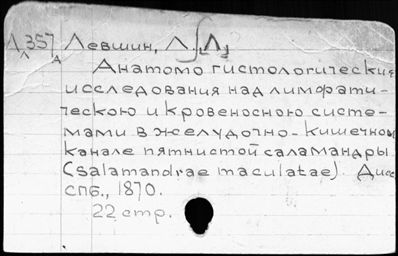 А357 Левшин, Л. Л.
Анатомо гистологические
исследования над лимфати-
ческою и кровеносною систе-
мами в желудочно-кишечном
канале пятнистой саламандры
(Salamandrae maculatae). Дисс
СПб., 1870.
22 стр.